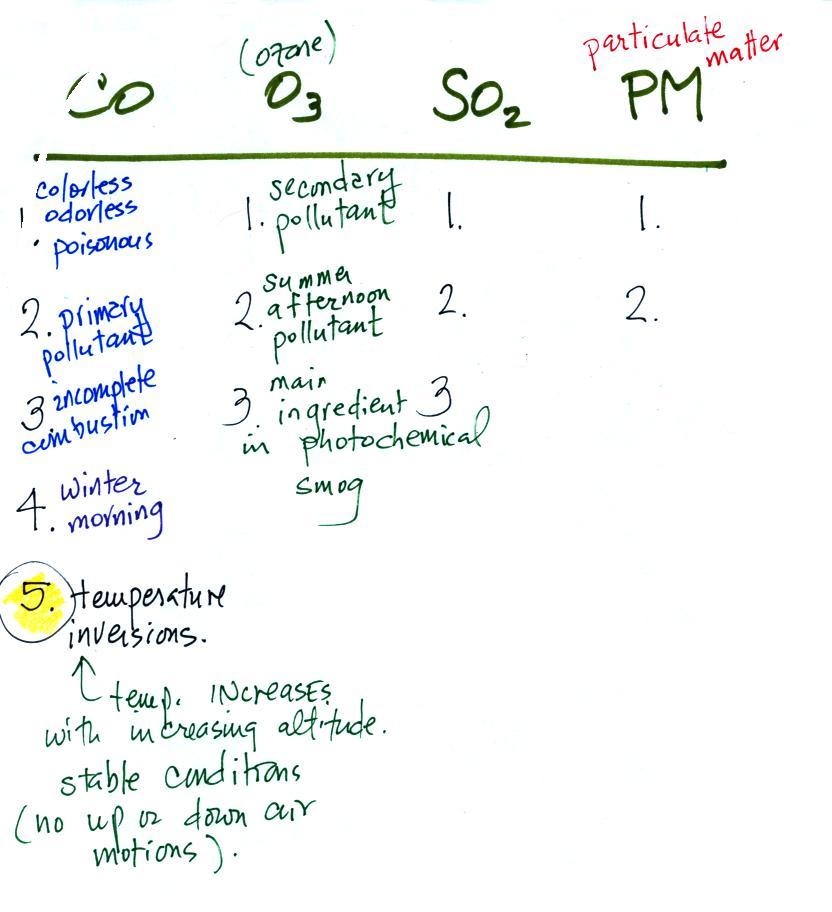 (ozone)
particulate
matter
CO
O3
SO2
PM
colorless
1. odorless
poisonous
2. primary
pollutant
3 incomplete
combustion
4. winter
morning
5. temperature
inversions.
↑ temp. INCREASES
with increasing altitude.
stable conditions
(no up or down air
motions).
secondary
1. pollutant
summer
2. afternoon
pollutant
main
3. ingredient
in photochemical
smog
1.
2.
3
1.
2.